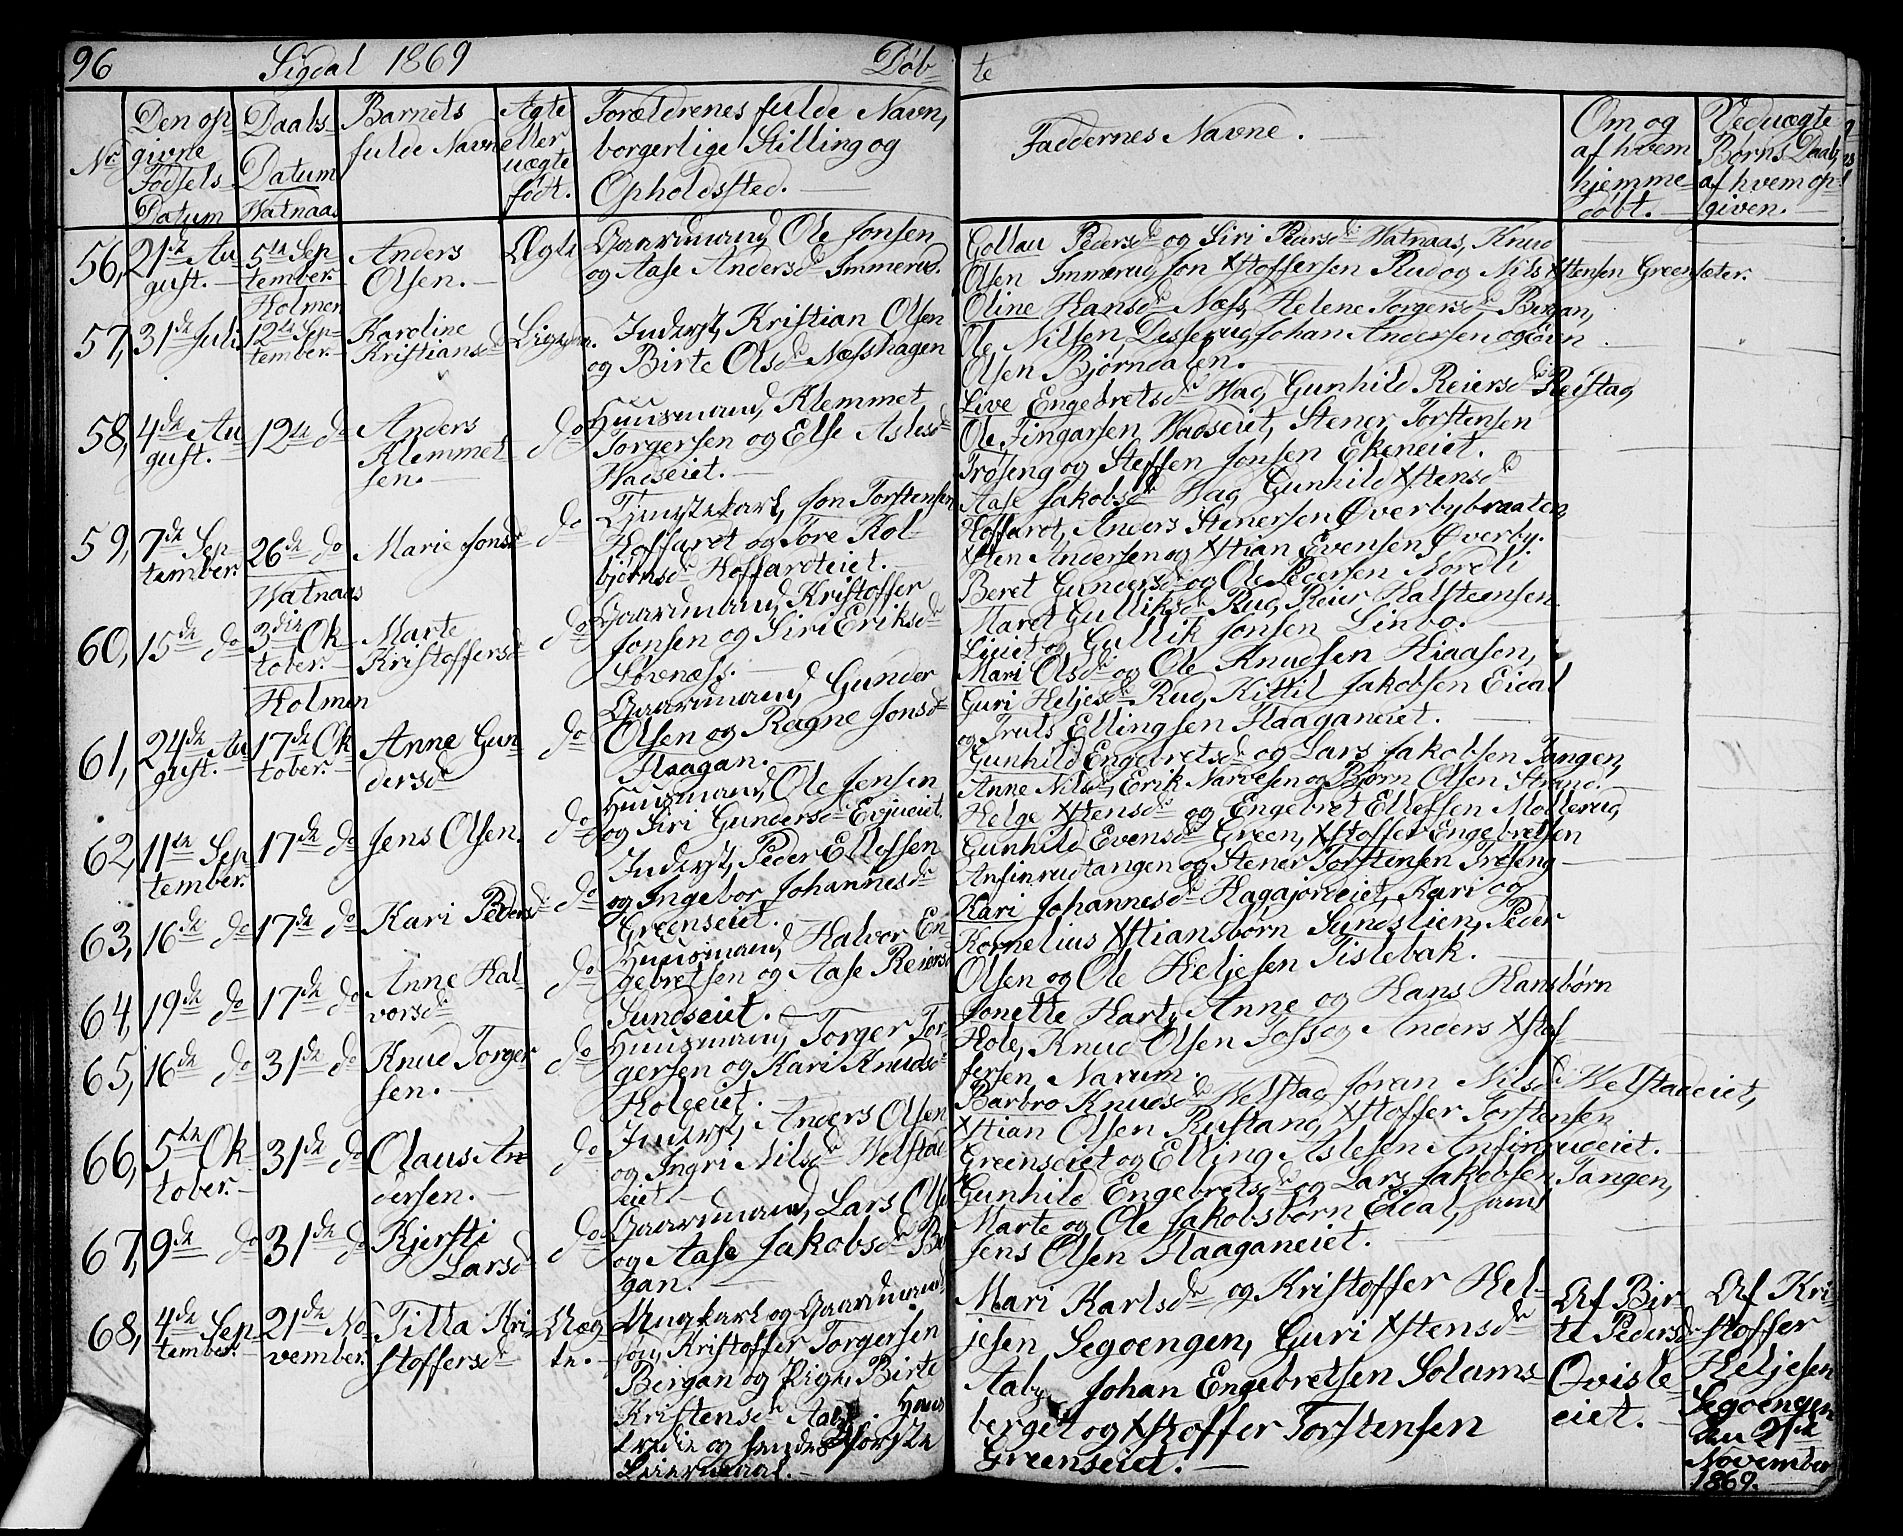 96 Sigdal 1869 Døb-
te
Nr.
Den op-
givne
Fødsels
Datum
Daabs-
Datum
Watnaas
Barnets
fulde Navn
Ægte
eller
uægte
født.
Forældrenes fulde Navn,
borgerlige Stilling og
Opholdsted. —
Faddernes Navne. —
Om og
af hvem
hjemme-
døbt. —
Ved uægte
Børns Daab,
af hvem op-
given. —
56,
21de Au
gust. —
5te Sep
tember.
Holmen
Anders
Olsen. —
Ægte
Gaardmand, Ole Jonsen
og Aase Andersdr Immerud.
Collau Pedersdr og Siri Pedersdr Watnaas, Knud
Olsen Immerud, Jon Xstoffersen Rud og Nils Xstensen Greensæter.
57,
31de Juli
12te Sep-
tember. —
Karoline
Kristiansdr
Ligesom.
Inderst, Kristian Olsen
og Birte Olsdr Næsshagen
Oline Hansdr Næss, Helene Torgersdr Bergan,
Ole Nilsen Desserud, Johan Andersen og Even
Olsen Bjørndalen.
58,
4de Au
gust. —
12te do
Anders
Klemmet
sen. —
do
Huusmand, Klemmet
Torgersen og Else Aslesdr
Wadseiet. —
Live Engebretsdr Wad, Gunhild Reiersdr Reistad,
Ole Fingarsen Wadseiet, Stener Torstensen
Trøseng og Steffen Jonsen Ekeneiet.
59,
7de Sep
tember.
26de do
Watnaas
Marie Jonsdr
do
Tjenestekarl, Jon Torstensen
Hoffaret og Tore Kol-
bjørnsdr Hoffardteiet. —
Aase Jakobsdr Wad, Gunhild Xstensdr
Hoffardt, Anders Stenersen Øverbybraaten,
Xsten Andersen og Xstian Evensen Øverby.
60,
15de do
3die Ok
tober. —
Holmen
Marte
Kristoffersdr
do
Gaardmand, Kristoffer
Jonsen og Siri Eriksdr
Lovenæss. —
Beret Gundersdr og Ole Pedersen Nordli
Maret Gulliksdr Rud, Reier Halstensen
Liiet og Gullik Jonsen Linbo. —
61,
24de Au
gust. —
17de Ok
tober. —
Anne Gun
dersdr
do
Gaardmand, Gunder
Olsen og Ragne Jonsdr
Haagan. —
Mari Olsdr og Ole Knudsen Hiaasen,
Guri Heljesdr Rud, Kittil Jakobsen Eidal
og Truls Ellingsen Haaganeiet.
62,
11te Sep
tember.
17de do
Jens Olsen.
do
Huusmand, Ole Jensen
og Siri Gundersdr Evjueiet.
Gunhild Engebretsdr og Lars Jakobsen Tangen,
Anne Nilsdr, Erik Narvesen og Bjørn Olsen Strand.
63,
16de do
17de do
Kari Pedersdr
do
Inderst, Peder Ellefsen
og Ingebor Johannesdr
Greenseiet.
Helge Xstensdr og Engebret Ellefsen Møllerud,
Gunhild Evensdr Green, Xstoffer Engebretsen
Ansinrudtangen og Stener Torstensen Trøseng —
64,
19de do
17de do
Anne Hal-
vorsdr
do
Huusmand, Halvor En-
gebretsen og Aase Reiersdr
Sundseiet. —
Kari Johannesdr Hagajordeiet, Kari og
Kornelius Xstiansbørn Sundslien, Peder
Olsen og Ole Heljesen Tislebak. —
65,
16de do
31de do
Knud Torger
sen. —
do
Huusmand, Torger Tor-
gersen og Kari Knudsdr
Holeeiet. —
Jonette Hart, Anne og Hans Hansbørn
Hole, Knud Olsen Foss og Anders Xstof
fersen Narum.
66,
5te Ok
tober. —
31de do
Olaus An-
dersen. —
do
Inderst, Anders Olsen
og Ingri Nilsdr Welstad
eiet.
Barbro Knudsdr Welstad, Joran Nilsdr Welstadeiet,
Xstian Olsen Rustand, Xstoffer Torstensen
Greenseiet og Elling Aslesen Ansinrudeiet.
67,
9de do
31de do
Kjersti
Larsdr
do
Gaardmand, Lars Olsen
og Aase Jakobsdr Ber
gan. —
Gunhild Engebretsdr og Lars Jakobsen Tangen,
Marte og Ole Jakobsbørn Eidal, samt
Jens Olsen Haaganeiet. —
68,
4de Sep
tember.
21de No
vember.
Titta Kri-
stoffersdr
Uæg
te. —
Ungkarl og Gaardmand-
søn, Kristoffer Torgersen
Bergan og Pige, Birte
Kristensdr Aaby.
og første
Leiermaal. —
Mari Karlsdr og Kristoffer Hel-
jesen Segoengen, Guri Xstensdr
Aaby, Johan Engebretsen Solums-
berget og Xstoffer Torstensen
Greenseiet. —
Af Bir-
te Pedersdr
Qvisle-
eiet. —
Af Kri-
stoffer
Heljesen
Segoengen
den 21de
November
1869. —